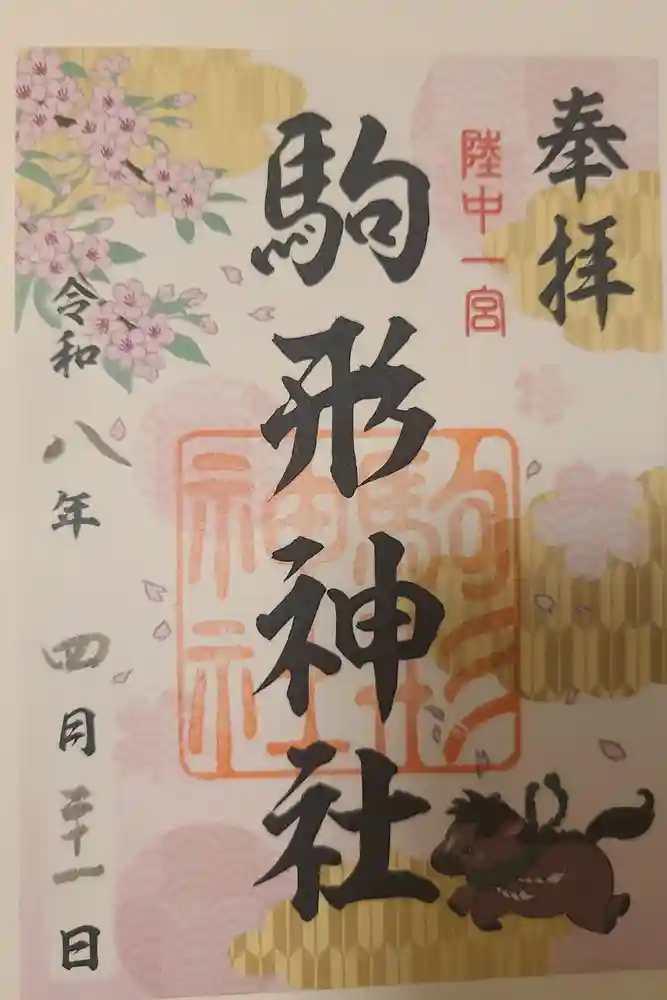 奉拝
陸中一宮
駒形神社
駒形神社
令和八年四月二十一日